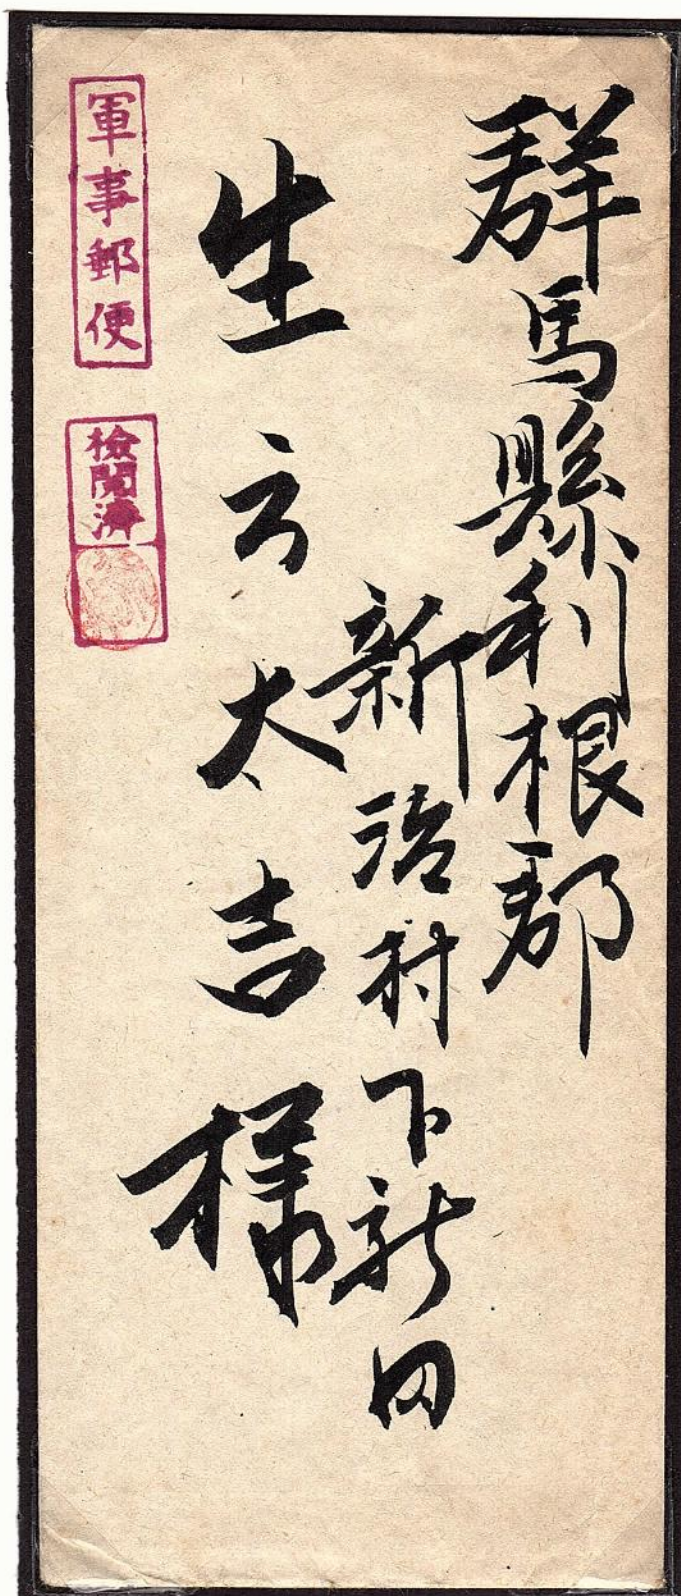 群馬縣利根郡
新治村下新田
生方太吉様
軍事郵便
檢閲濟